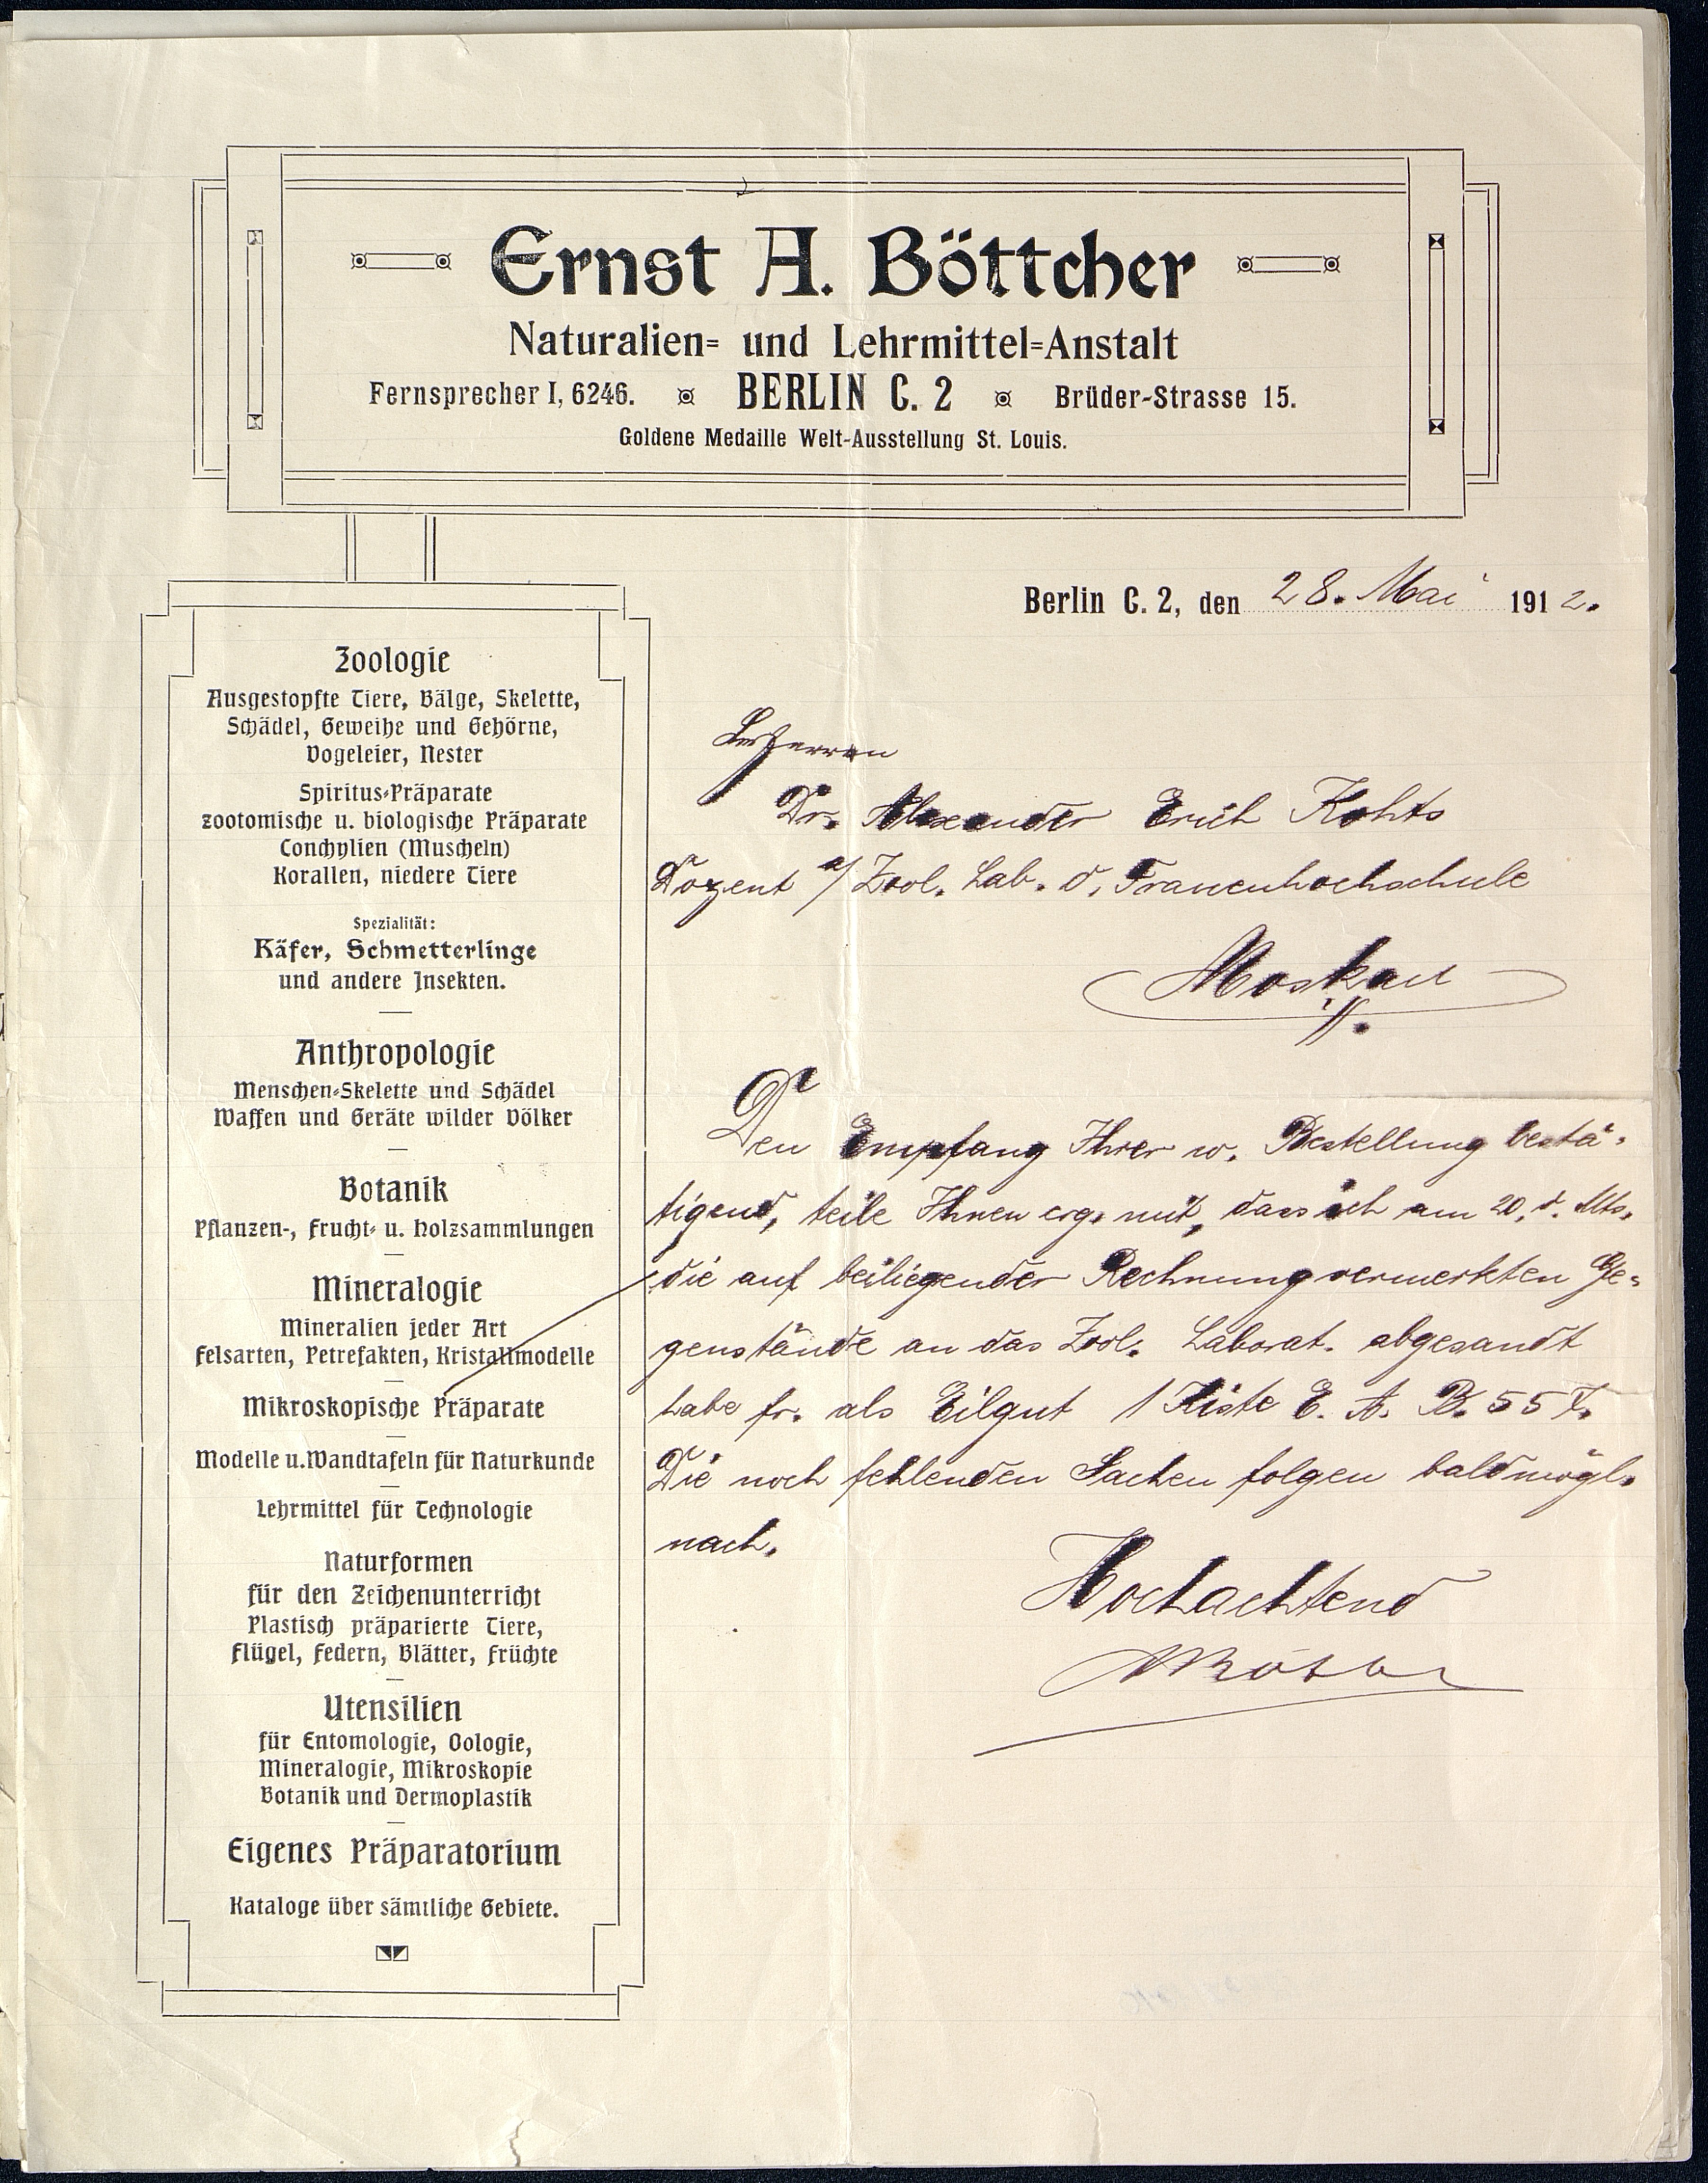 Ernst A. Böttcher
Naturalien= und Lehrmittel=Anstalt
Fernsprecher I, 6246. BERLIN C. 2 Brüder-Strasse 15.
Goldene Medaille Welt-Ausstellung St. Louis.
Berlin C. 2, den 28. Mai 1912.
Zoologie
Ausgestopfte Tiere, Bälge, Skelette,
Schädel, Geweihe und Gehörne,
Vogeleier, Nester
Spiritus-Präparate
zootomische u. biologische Präparate
Conchylien (Muscheln)
Korallen, niedere Tiere
Spezialität:
Käfer, Schmetterlinge
und andere Insekten.
Anthropologie
Menschen-Skelette und Schädel
Waffen und Geräte wilder Völker
Botanik
Pflanzen-, Frucht- u. Holzsammlungen
Mineralogie
Mineralien jeder Art
Felsarten, Petrefakten, Kristallmodelle
Mikroskopische Präparate
Modelle u. Wandtafeln für Naturkunde
Lehrmittel für Technologie
Naturformen
für den Zeichenunterricht
Plastisch präparierte Tiere,
Flügel, Federn, Blätter, Früchte
Utensilien
für Entomologie, Oologie,
Mineralogie, Mikroskopie
Botanik und Dermoplastik
Eigenes Präparatorium
Kataloge über sämtliche Gebiete.
Herren
Dr. Alexander Erich Kohts
Dozent a/ Zool. Lab. d. Frauenhochschule
Moskau
Den Empfang Ihrer w. Bestellung bestä-
tigend, teile Ihnen erg. mit, dass ich am 20. d. Mts.
die auf beiliegender Rechnung vermerkten Ge-
genstände an das Zool. Laborat. abgesandt
habe fr. als Eilgut 1 Kiste E. A. B. 557.
Die noch fehlenden Sachen folgen baldmögl.
nach.
Hochachtend